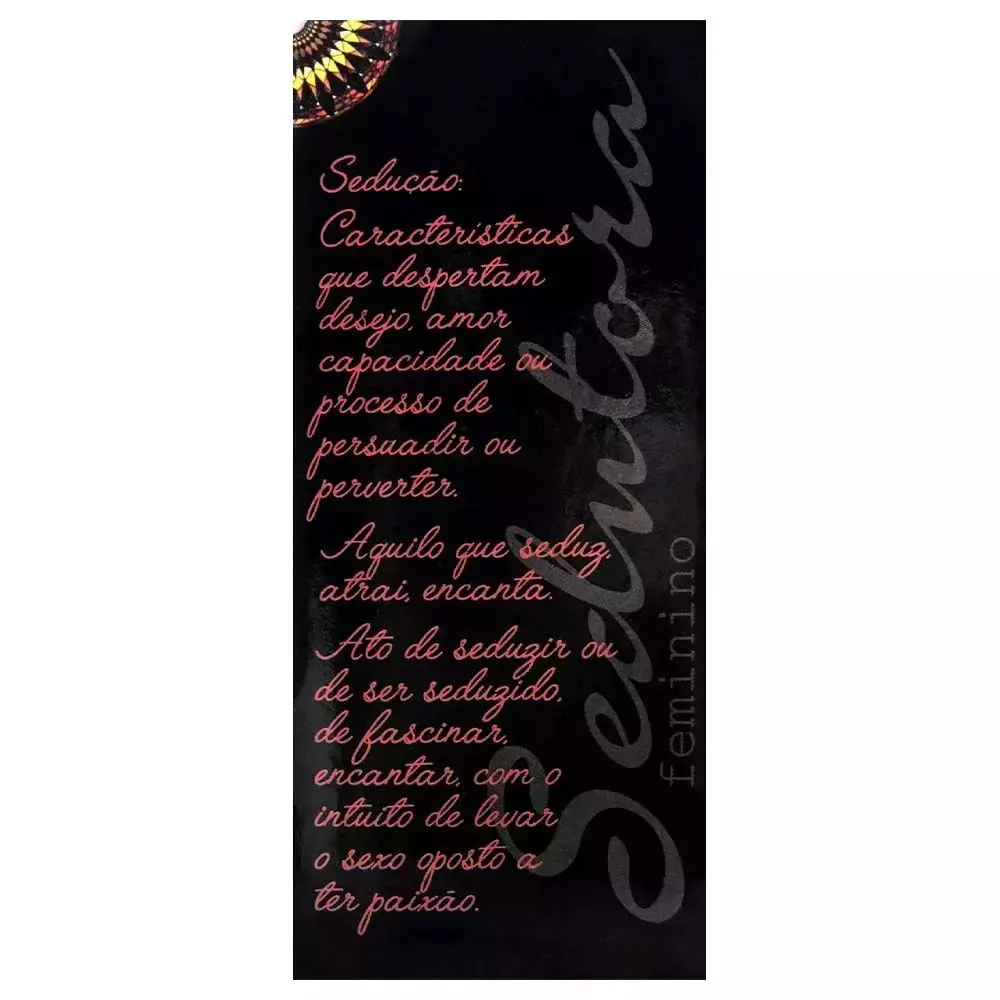 Sedução:
Características
que despertam
desejo, amor
capacidade ou
processo de
persuadir ou
perverter.
Aquilo que seduz,
atrai, encanta.
Ato de seduzir ou
de ser seduzido,
de fascinar,
encantar, com o
intuito de levar
o sexo oposto a
ter paixão.
Sedutora
feminino